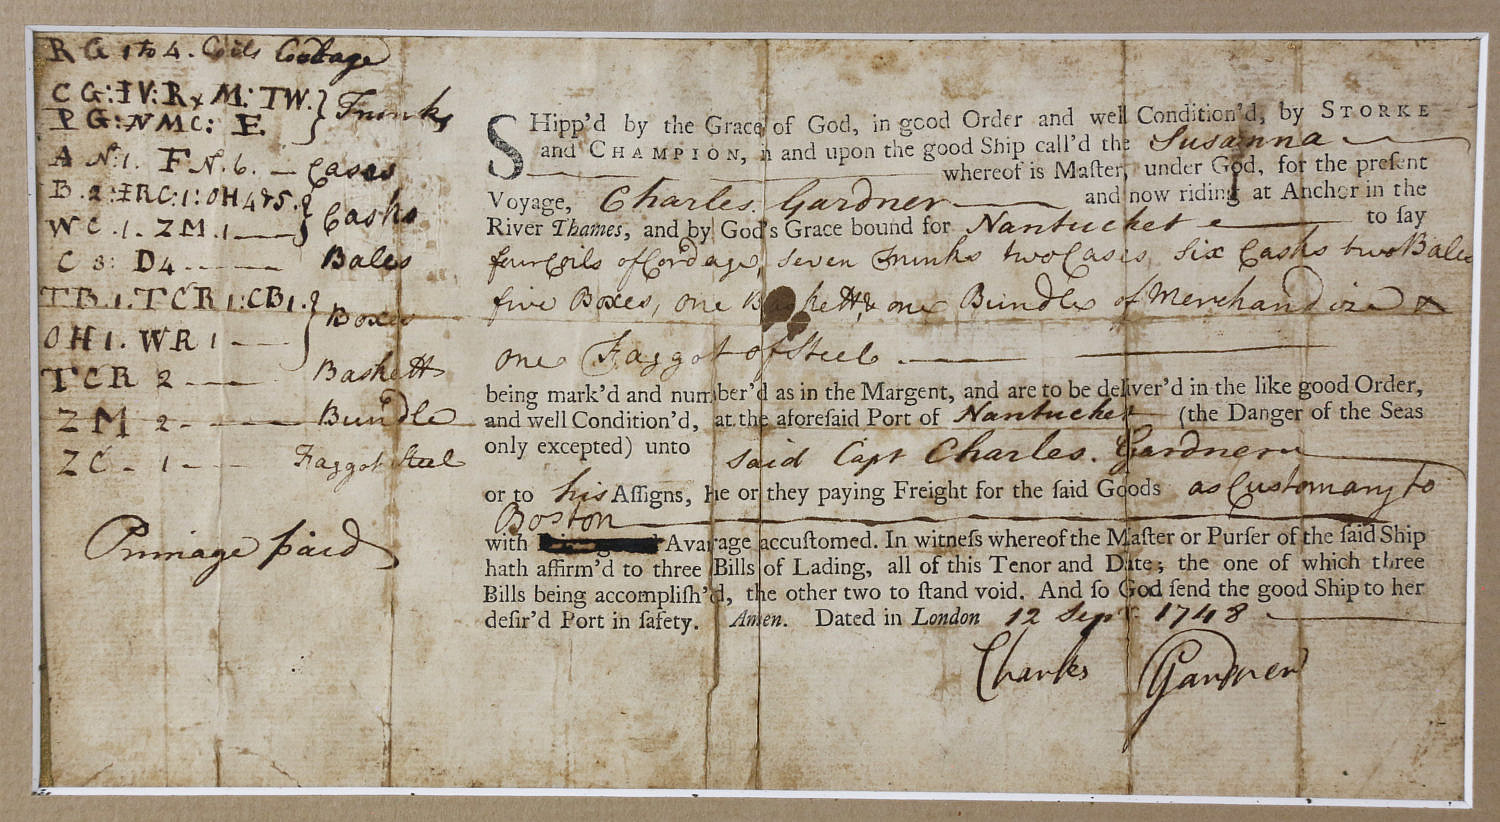 R G 1 to 4. Coils Cordage
C G: IV: R x M: TW. } Trunks
P G: N M C: E.
A N:1. F N. 6. — Cases
B. 2: IRC: 1: OH 4 & 5. } Casks
W C. 1. Z M. 1 —
C 3: D 4 ----- Bales
T B 1. T C R 1: C B 1. } Boxes
O H 1. W R 1 —
T C R 2 — Baskett
Z M 2 - — Bundle
Z C - 1 - — Faggot Steel
Primage paid
SHipp'd by the Grace of God, in good Order and well Condition'd, by STORKE
and CHAMPION, in and upon the good Ship call'd the Susanna
whereof is Maſter, under God, for the preſent
Voyage, Charles Gardner and now riding at Anchor in the
River Thames, and by God's Grace bound for Nantucket to ſay
four Coils of Cordage, Seven Trunks two Cases, six Casks two Bales
five Boxes, one Baskett, & one Bundle of Merchandize &
one Faggot of Steel
being mark'd and number'd as in the Margent, and are to be deliver'd in the like good Order,
and well Condition'd, at the aforeſaid Port of Nantucket (the Danger of the Seas
only excepted) unto said Capt Charles. Gardner
or to his Aſſigns, he or they paying Freight for the ſaid Goods as Customary to
Boston
with Avarage accuſtomed. In witneſs whereof the Maſter or Purſer of the ſaid Ship
hath affirm'd to three Bills of Lading, all of this Tenor and Date; the one of which three
Bills being accompliſh'd, the other two to ſtand void. And ſo God ſend the good Ship to her
deſir'd Port in ſafety. Amen. Dated in London 12 Sepr. 1748
Charles Gardner